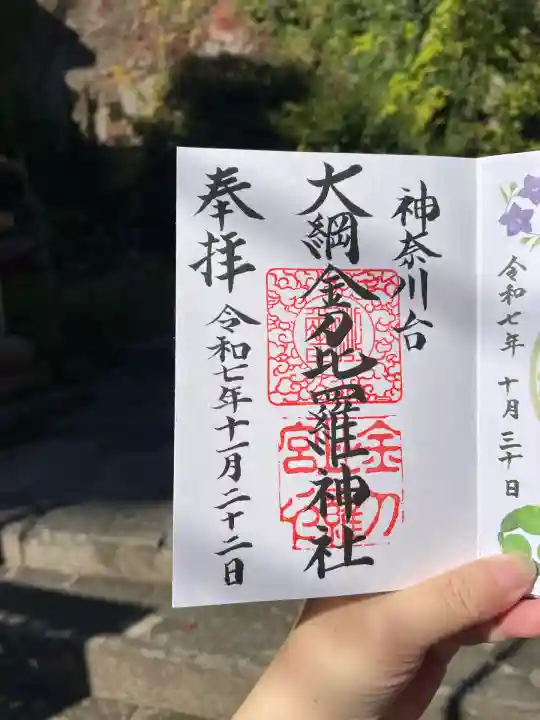 令和七年 十月三十日
神奈川台
大綱金刀比羅神社
奉拝
令和七年十一月二十二日